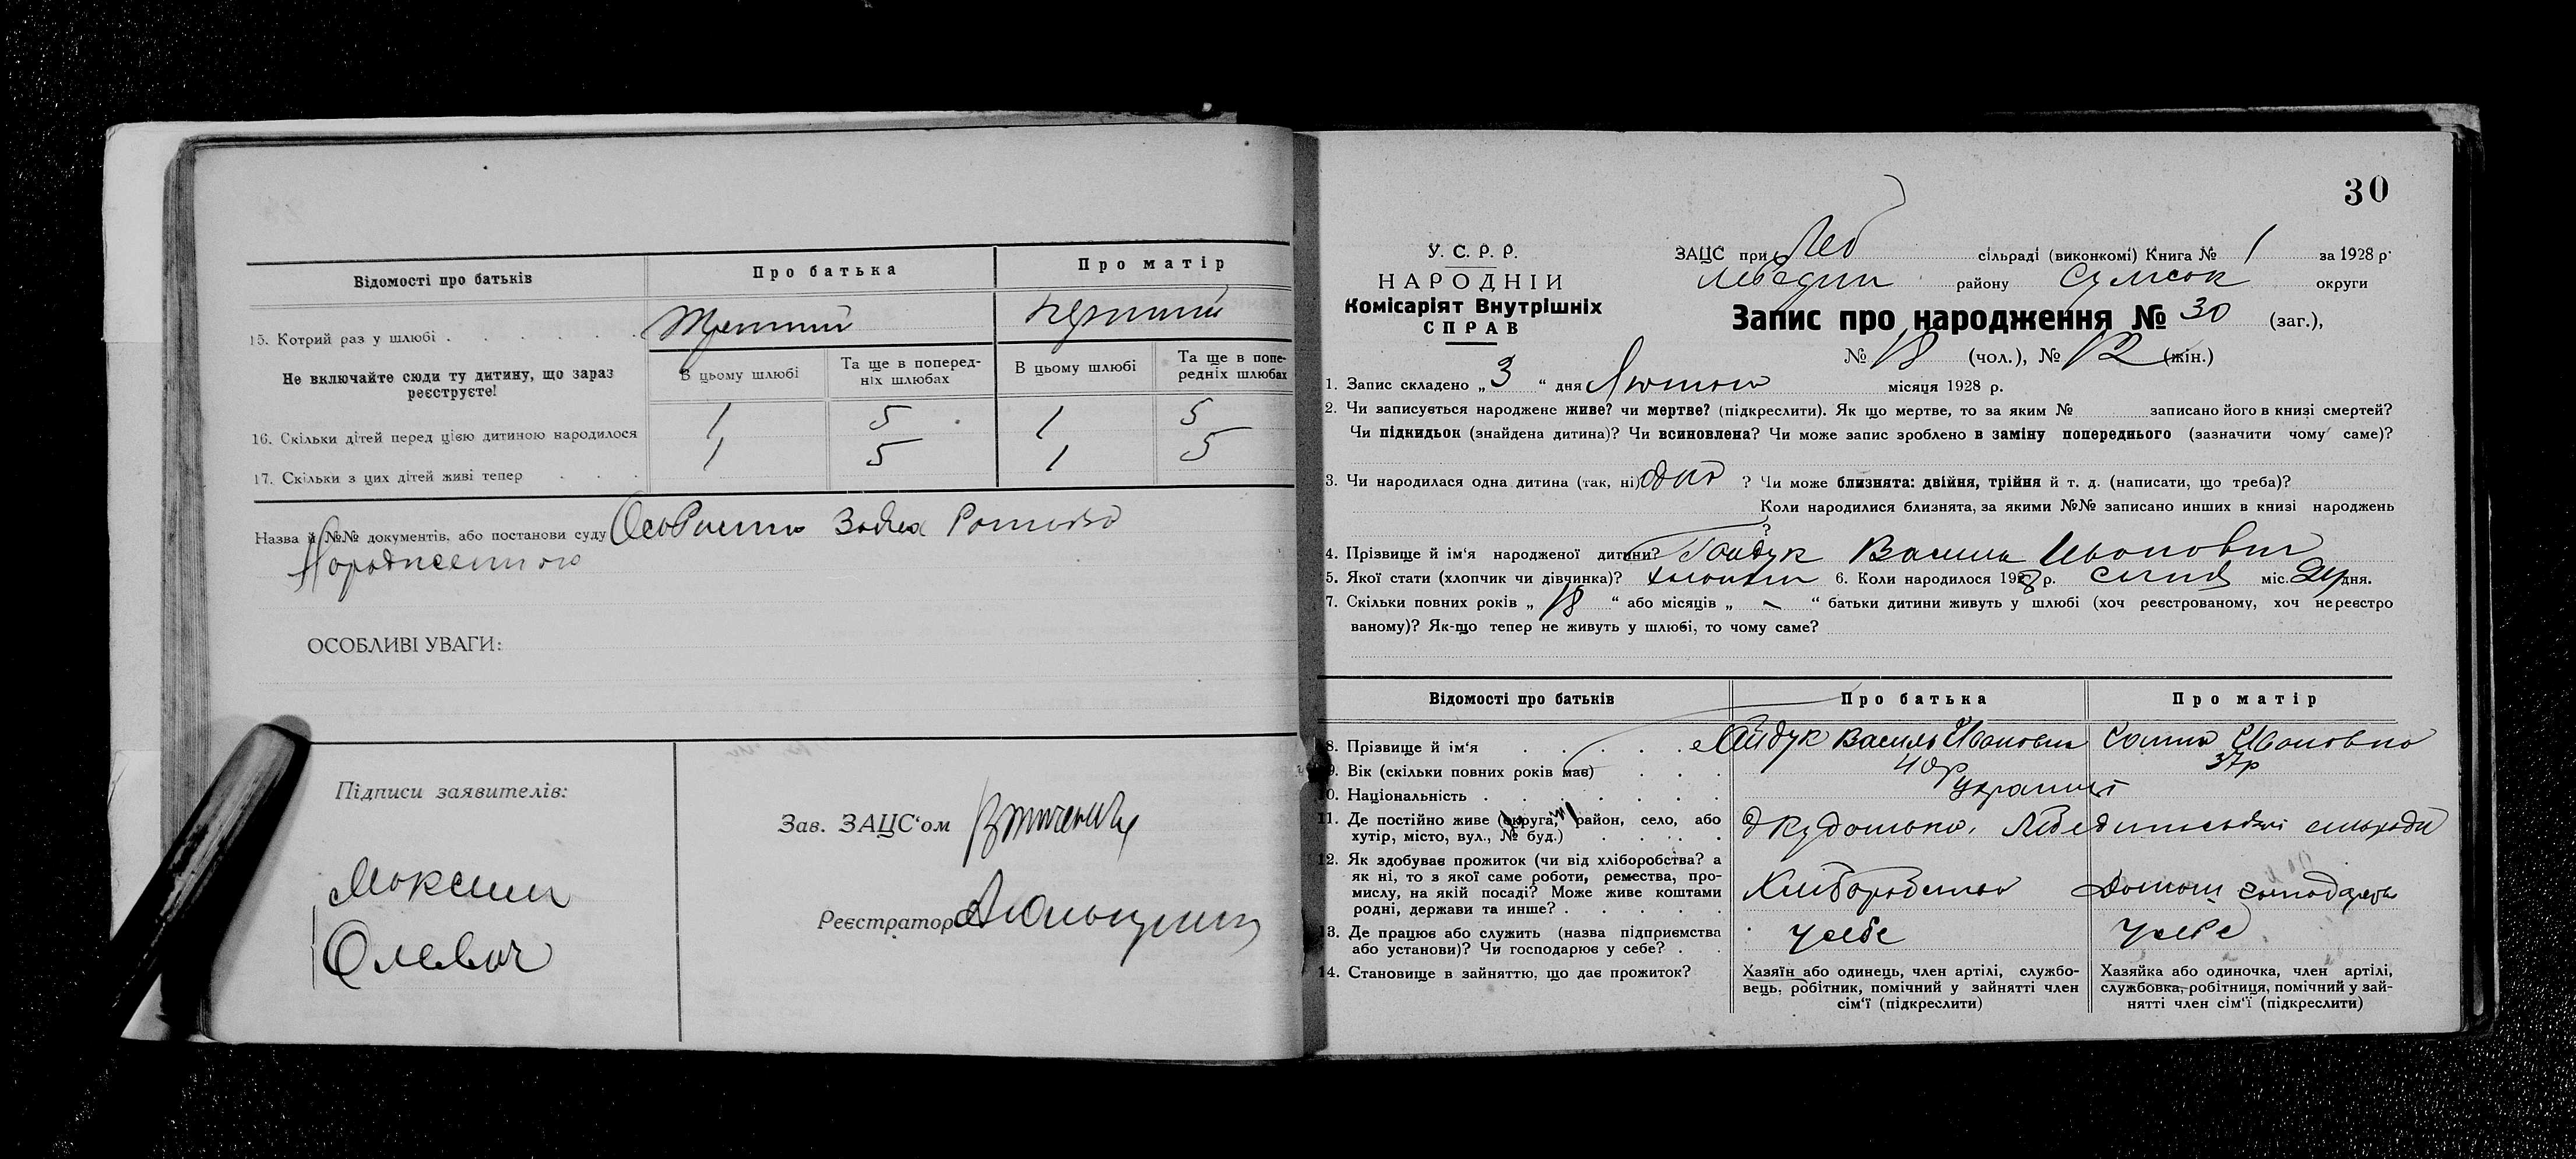 Відомості про батьків
Про батька
Про матір
15. Котрий раз у шлюбі
Не включайте сюди ту дитину, що зараз
реєструєте!
В цьому шлюбі
Та ще в поперед-
ніх шлюбах
В цьому шлюбі
Та ще в попе-
редніх шлюбах
16. Скільки дітей перед цією дитиною народилося
1 5 1 5
17. Скільки з цих дітей живі тепер
1 5 1 5
Назва й №№ документів, або постанови суду
ОСОБЛИВІ УВАГИ:
Підписи заявителів:
Зав. ЗАЦС‘ом
Реєстратор
30
У. С. Р. Р.
НАРОДНІЙ
Комісаріят Внутрішніх
СПРАВ
ЗАЦС при Леб сільраді (виконкомі) Книга № 1 за 1928 р.
Лебедин району Сумськ округи
Запис про народження № 30 (заг.),
№ 18 (чол.), № 12 (жін.)
1. Запис складено „ 3 “ дня Лютого місяця 1928 р.
2. Чи записується народжене живе? чи мертве? (підкреслити). Як що мертве, то за яким № записано його в книзі смертей?
Чи підкидьок (знайдена дитина)? Чи всиновлена? Чи може запис зроблено в заміну попереднього (зазначити чому саме)?
3. Чи народилася одна дитина (так, ні) одна ? Чи може близнята: двійня, трійня й т. д. (написати, що треба)?
Коли народилися близнята, за якими №№ записано инших в книзі народжень
?
4. Прізвище й ім‘я народженої дитини? Гайдук Василь Іванович
5. Якої стати (хлопчик чи дівчинка)? хлопчик 6. Коли народилося 1928 р. січня міс. дня.
7. Скільки повних років „ 18 “ або місяців „ – “ батьки дитини живуть у шлюбі (хоч реєстрованому, хоч нереєстро
ваному)? Як-що тепер не живуть у шлюбі, то чому саме?
Відомості про батьків
Про батька
Про матір
8. Прізвище й ім‘я
Гайдук Василь Іванович
Івановна
9. Вік (скільки повних років має)
40р
37р
10. Національність
11. Де постійно живе (округа, район, село, або
хутір, місто, вул., № буд.)
12. Як здобуває прожиток (чи від хліборобства? а
як ні, то з якої саме роботи, ремества, про-
мислу, на якій посаді? Може живе коштами
родні, держави та инше?
Хліборобство
13. Де працює або служить (назва підприємства
або установи)? Чи господарює у себе?
у себе
у себе
14. Становище в зайняттю, що дає прожиток?
Хазяїн або одинець, член артілі, службо-
вець, робітник, помічний у зайнятті член
сім‘ї (підкреслити)
Хазяйка або одиночка, член артілі,
службовка, робітниця, помічний у зай-
нятті член сім‘ї (підкреслити)